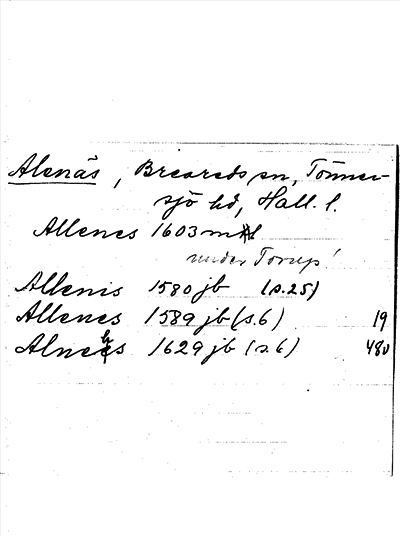 Alenäs, Breareds sn, Tönner-
sjö hd, Hall. l.
Allenes 1603 mtl
under Torup!
Allenis 1580 jb (s.25)
Allenes 1589 jb (s.6) 19
Alnees 1629 jb (s.6) 480